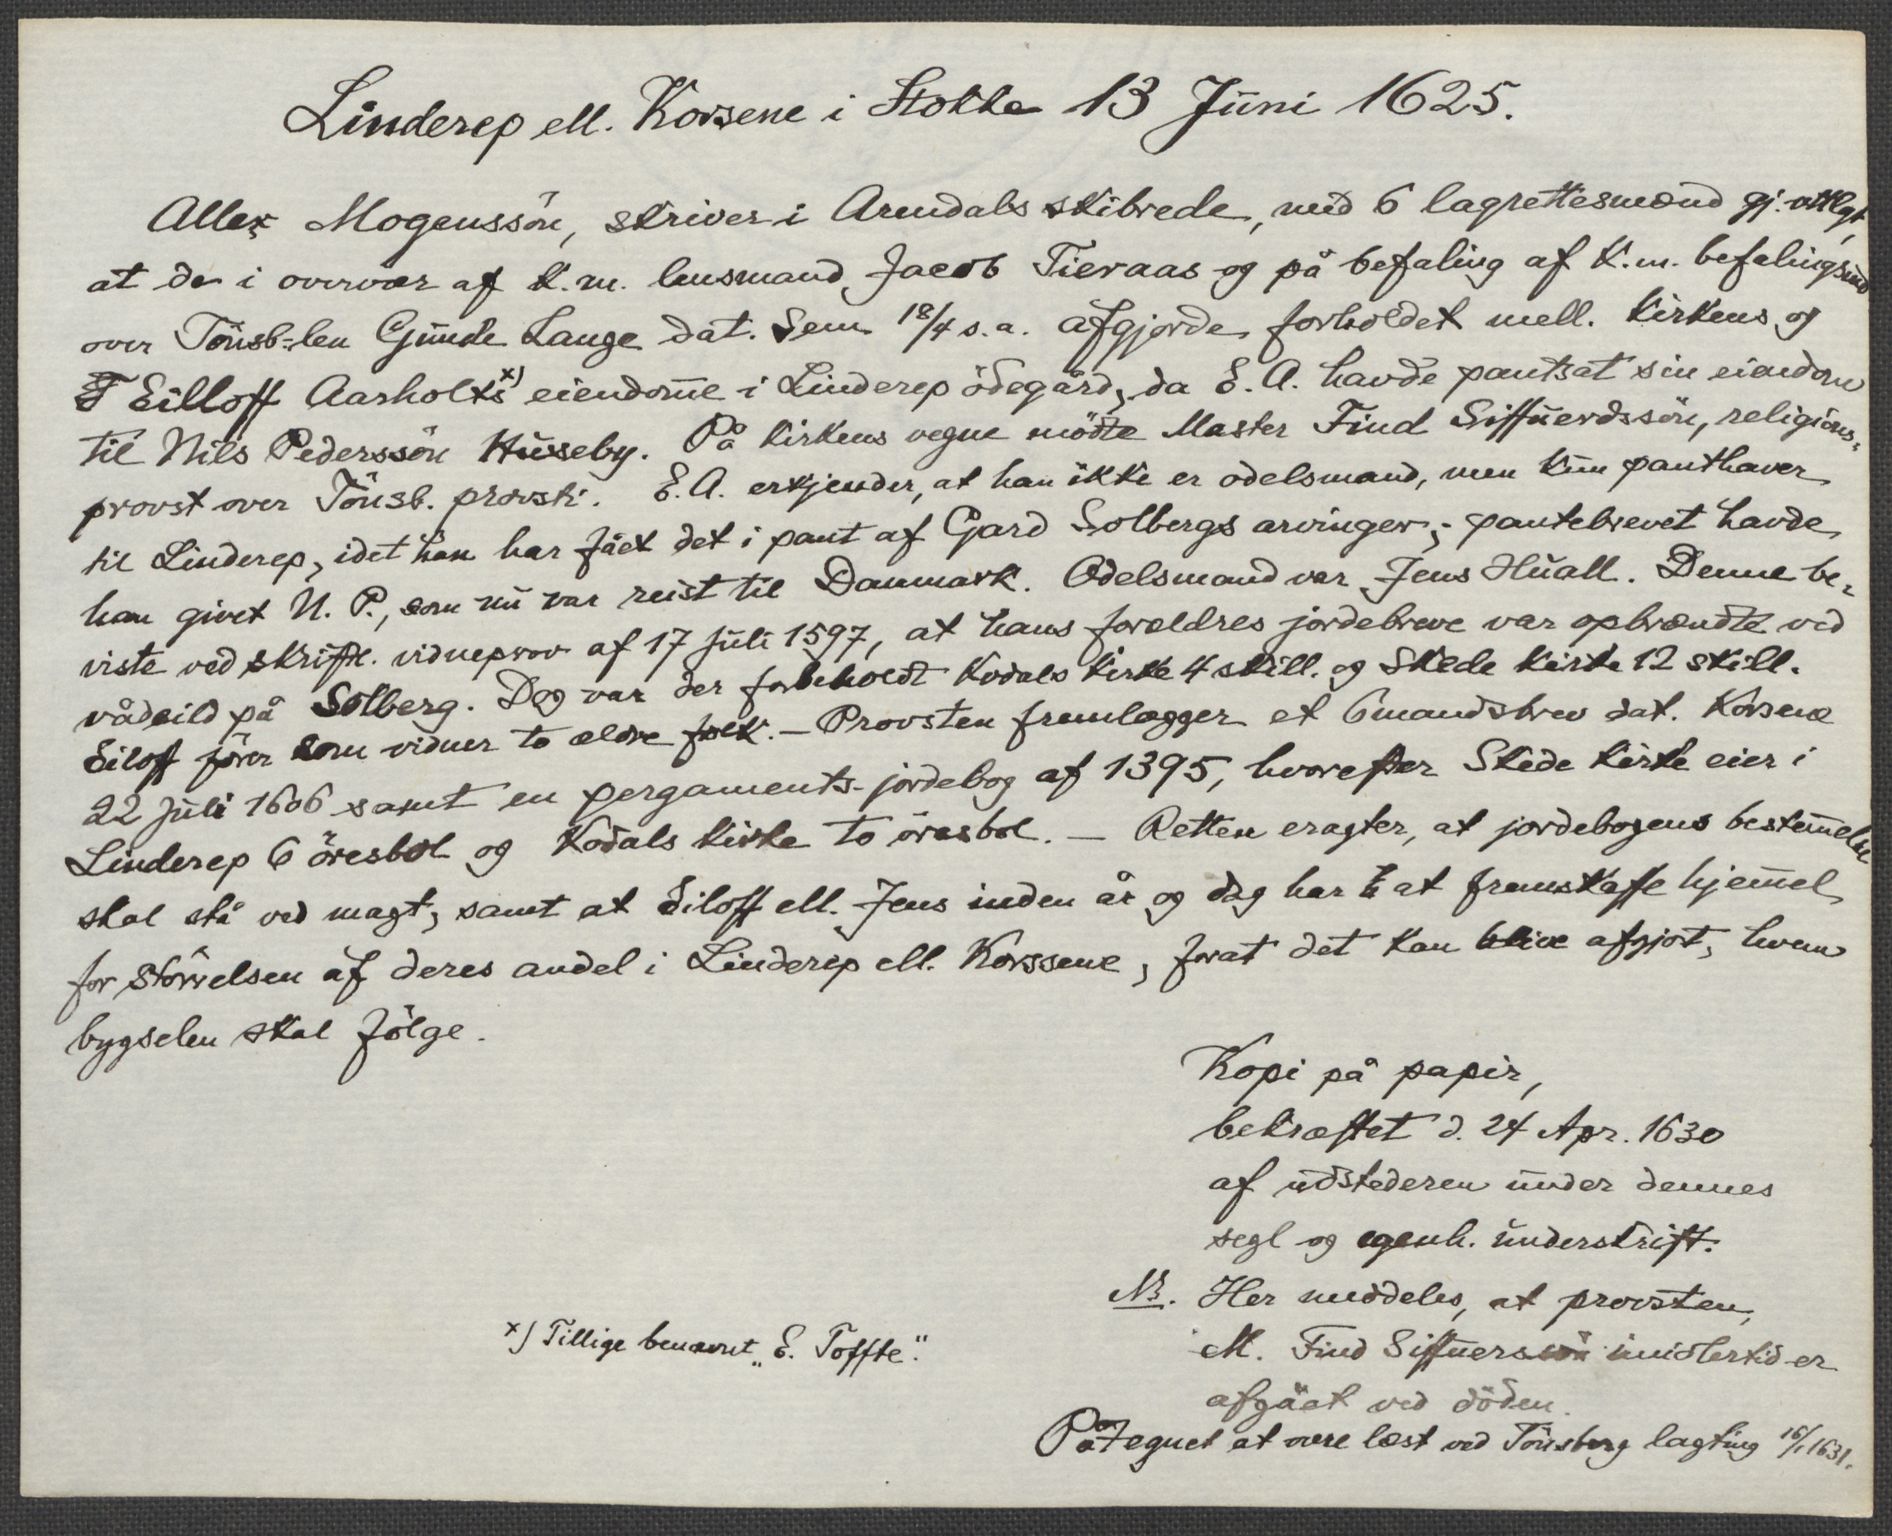 Linderep ell. Korsene i Stokke 13 Juni 1625.
Allex Mogenssön, skriver i Arendals skibrede, med 6 lagrettesmænd gj. vitlgt,
at de i overvær af k.m. lensmand Jacob Tieraas og på befaling af k.m. befalingsmd
over Tönsb-len Gunde Lange dat. Sem 18/4 s.a. afgjorde forholdet mell. kirkens og
Eilloff Aarholts x) eiendom̄e i Linderep ödegård, da E. A. havde pantsat sin eiendom
til Nils Pederssön Huseby. På kirkens vegne mödte Master Find Siffuerdssön, religions-
provst over Tönsb. provsti. E. A. erkjender, at han ikke er odelsmand, men kun panthaver
til Linderep, idet han har fået det i pant af Gard Solbergs arvinger; pantebrevet havde
han givet N. P., som nu var reist til Danmark. Odelsmand var Jens Huall. Denne be-
viste ved skriftl. vidneprov af 17 Juli 1597, at hans forældres jordebreve var opbrændte ved
vådeild på Solberg. Dog var der forbeholdt Kodals kirke 4 skill. og Skede kirke 12 skill.
Eiloff förer som vidner to ældre folk. — Provsten fremlægger et 6mandsbrev dat. Korsene
22 Juli 1606 samt en pergaments-jordebog af 1395, hvorefter Skede kirke eier i
Linderep 6 öresbol og Kodals kirke to öresbol. — Retten eragter, at jordebogens bestem̄else
skal stå ved magt, samt at Eiloff ell. Jens inden år og dag har at fremskaffe hjem̄el
for störrelsen af deres andel i Linderep ell. Korssene, forat det kan blive afgjort, hvem
bygselen skal fölge.
Kopi på papir,
bekræftet d. 24 Apr. 1630
af udstederen under dennes
segl og egenh. underskrift.
NB. Her meddeles, at provsten,
M. Find Siffuerssön imidlertid er
afgået ved döden.
x) Tillige benævnt „E. Toffte".
Påtegnet at være læst ved Tönsberg lagting 16/1 1631.